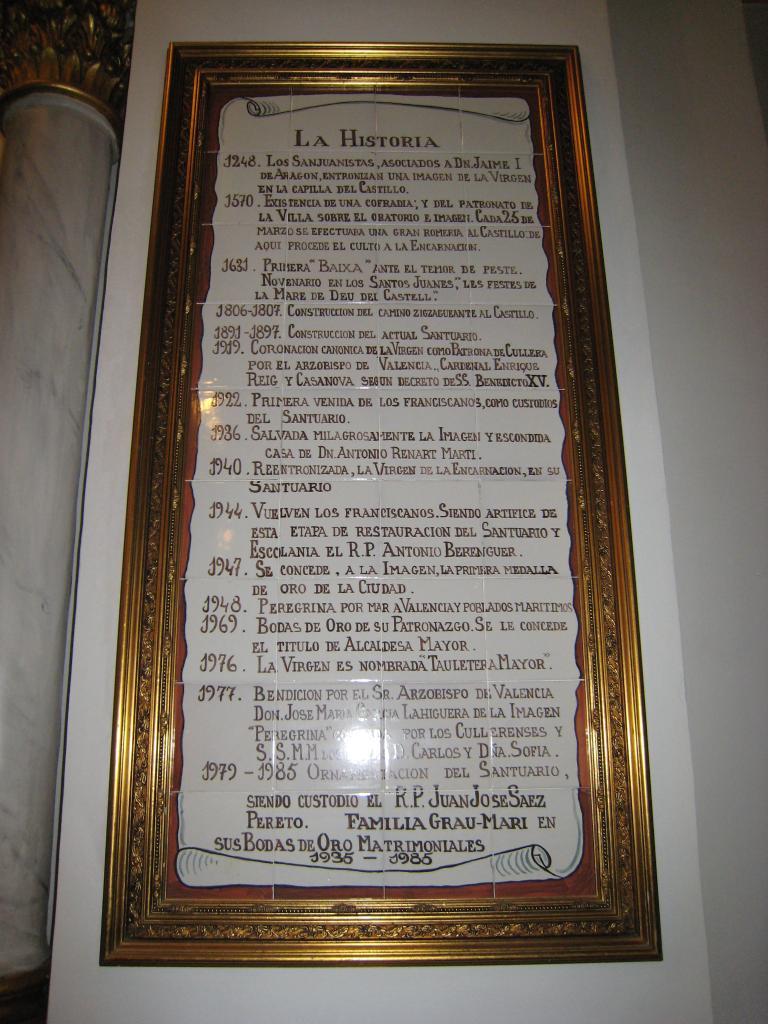 LA HISTORIA
1248. LOS SANJUANISTAS, ASOCIADOS A DN. JAIME I
DE ARAGON, ENTRONIZAN UNA IMAGEN DE LA VIRGEN
EN LA CAPILLA DEL CASTILLO.
1570. EXISTENCIA DE UNA COFRADIA; Y DEL PATRONATO DE
LA VILLA SOBRE EL ORATORIO E IMAGEN. CADA 25 DE
MARZO SE EFECTUABA UNA GRAN ROMERIA AL CASTILLO: DE
AQUI PROCEDE EL CULTO A LA ENCARNACION.
1631. PRIMERA "BAIXA" ANTE EL TEMOR DE PESTE.
NOVENARIO EN LOS SANTOS JUANES, "LES FESTES DE
LA MARE DE DEU DEL CASTELL".
1806-1807. CONSTRUCCION DEL CAMINO ZIGZAGUEANTE AL CASTILLO.
1891-1897. CONSTRUCCION DEL ACTUAL SANTUARIO.
1919. CORONACION CANONICA DE LA VIRGEN COMO PATRONA DE CULLERA
POR EL ARZOBISPO DE VALENCIA, CARDENAL ENRIQUE
REIG Y CASANOVA SEGUN DECRETO DE SS. BENEDICTO XV.
1922. PRIMERA VENIDA DE LOS FRANCISCANOS, COMO CUSTODIOS
DEL SANTUARIO.
1936. SALVADA MILAGROSAMENTE LA IMAGEN Y ESCONDIDA
CASA DE DN. ANTONIO RENART MARTI.
1940. REENTRONIZADA, LA VIRGEN DE LA ENCARNACION, EN SU
SANTUARIO
1944. VUELVEN LOS FRANCISCANOS. SIENDO ARTIFICE DE
ESTA ETAPA DE RESTAURACION DEL SANTUARIO Y
ESCOLANIA EL R.P. ANTONIO BERENGUER.
1947. SE CONCEDE, A LA IMAGEN, LA PRIMERA MEDALLA
DE ORO DE LA CIUDAD.
1948. PEREGRINA POR MAR A VALENCIA Y POBLADOS MARITIMOS
1969. BODAS DE ORO DE SU PATRONAZGO. SE LE CONCEDE
EL TITULO DE ALCALDESA MAYOR.
1976. LA VIRGEN ES NOMBRADA "TAULETERA MAYOR".
1977. BENDICION POR EL SR. ARZOBISPO DE VALENCIA
DON. JOSE MARIA GARCIA LAHIGUERA DE LA IMAGEN
"PEREGRINA" POR LOS CULLERENSES Y
S.S.M.M. D. CARLOS Y DÑA. SOFIA.
1979 - 1985 ORNAMENTACION DEL SANTUARIO,
SIENDO CUSTODIO EL R.P. JUAN JOSE SAEZ
PERETO. FAMILIA GRAU-MARI EN
SUS BODAS DE ORO MATRIMONIALES
1935 - 1985